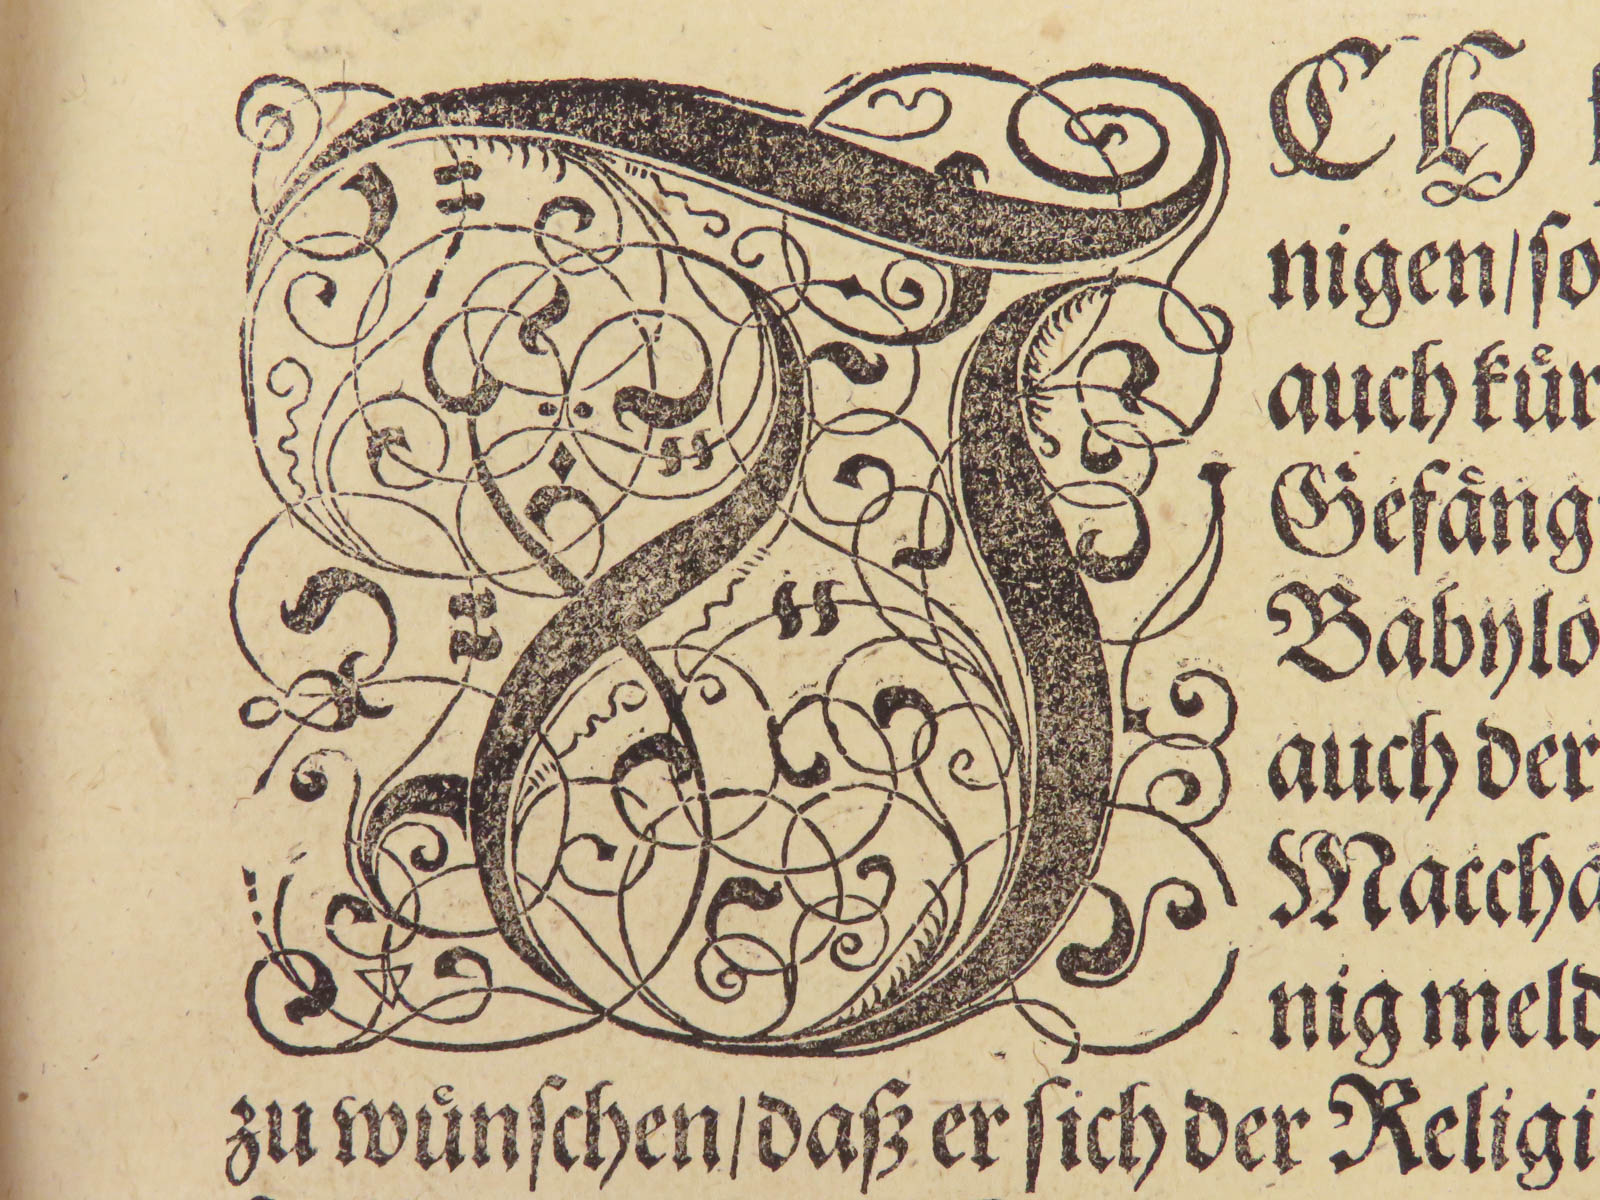 ICH
nigen/so
auch kuͤr
Gefaͤng
Babylo
auch der
Maccha
nig meld
zu wuͤnschen/daß er sich der Religi